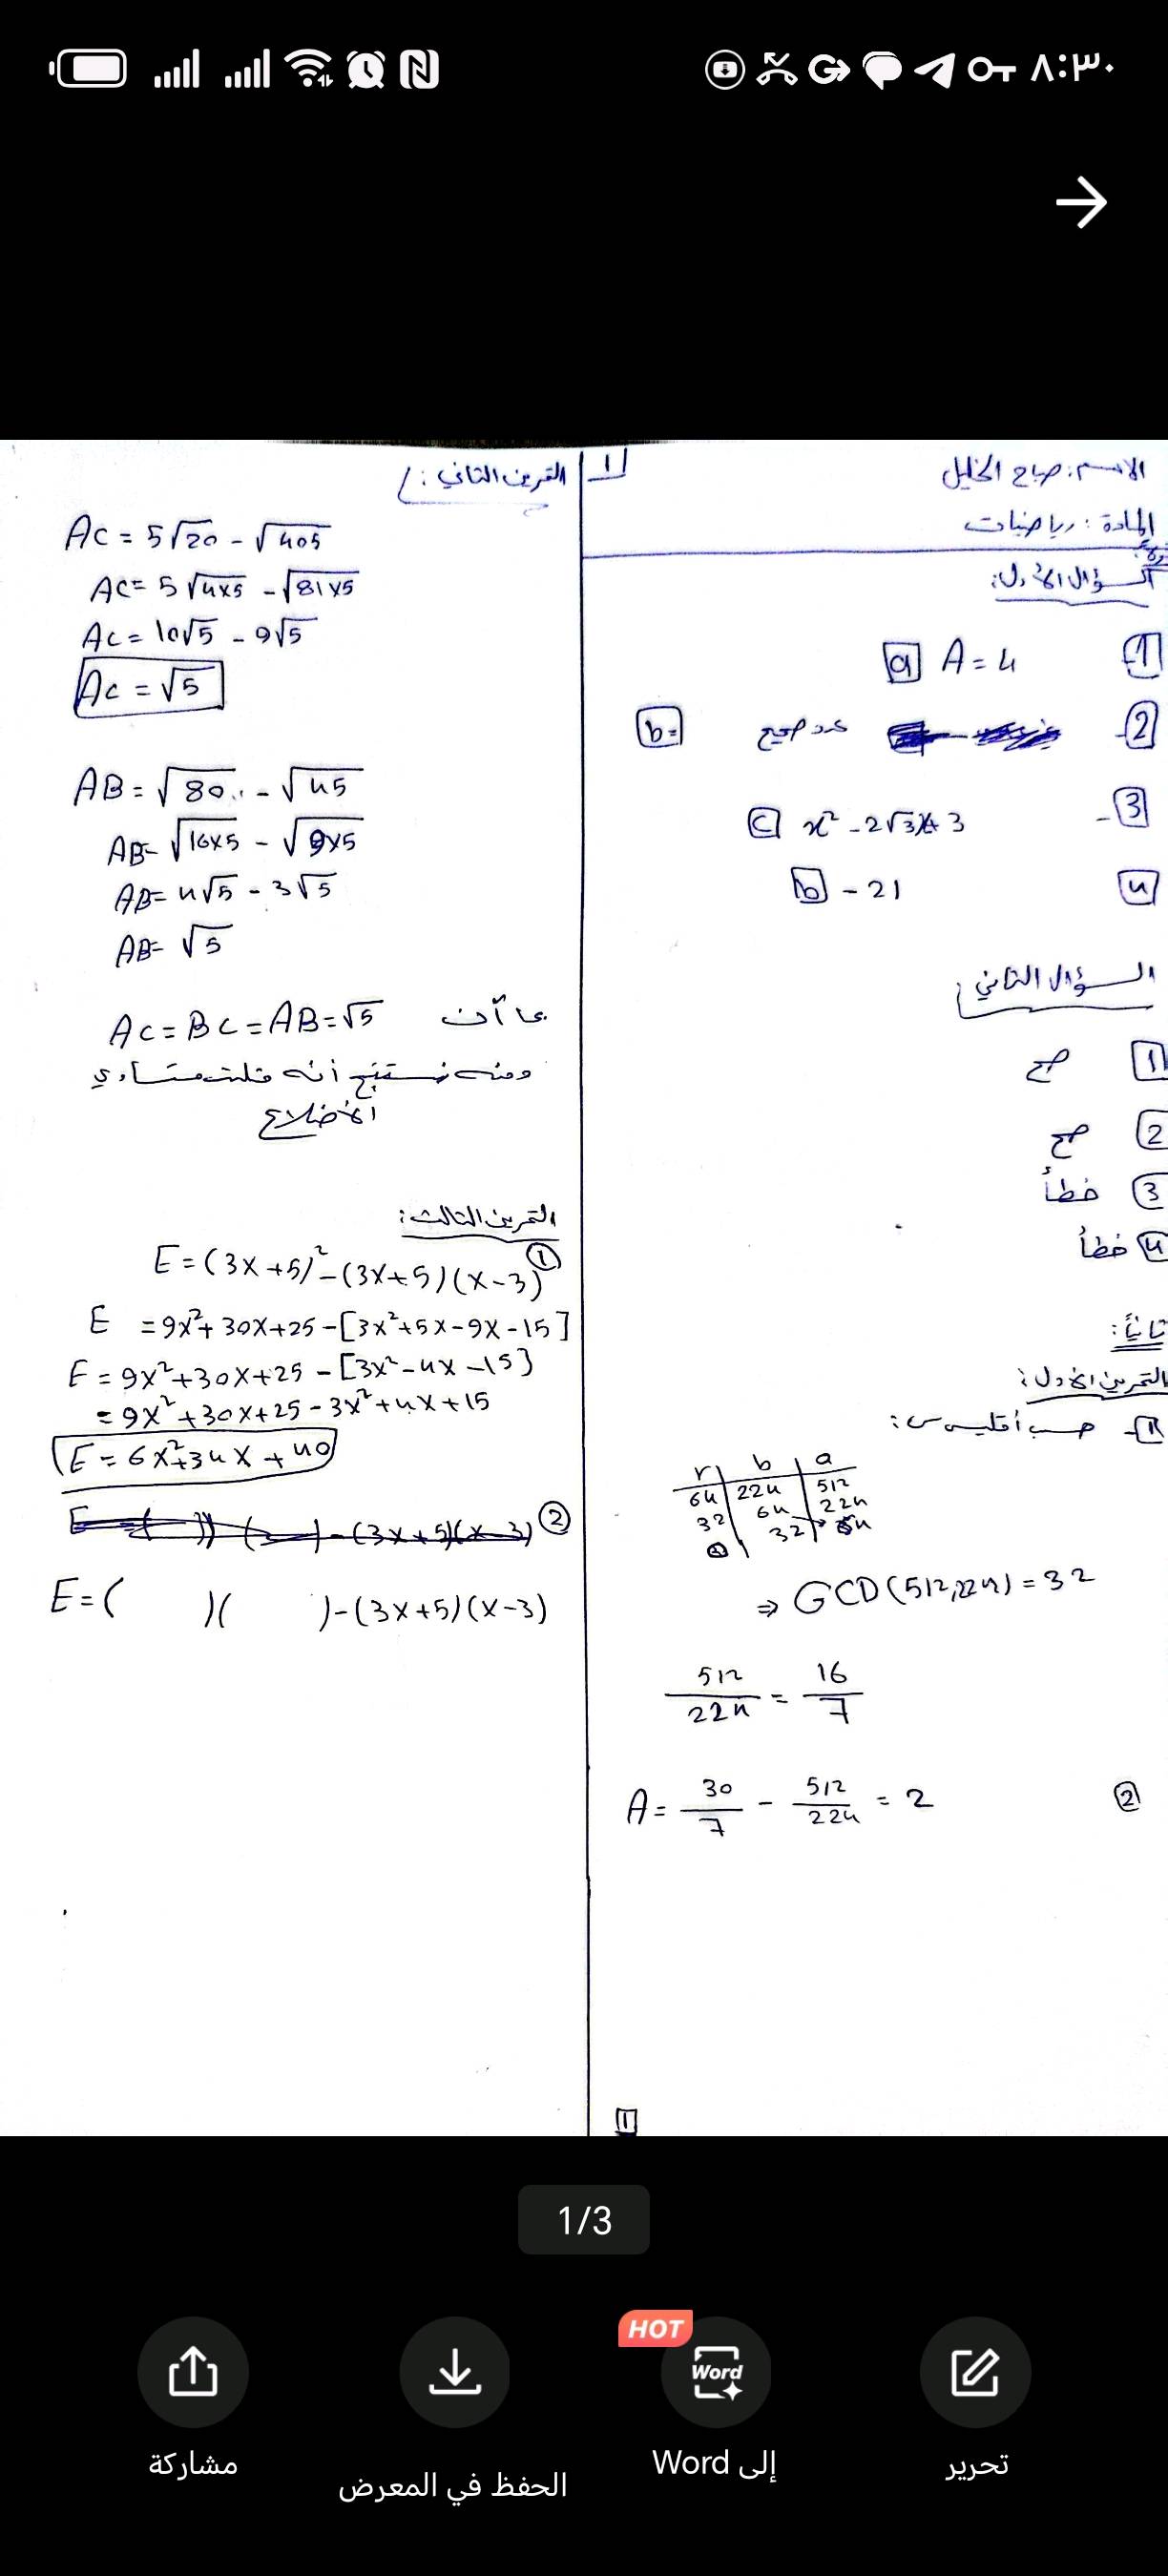 ٨:٣٠
الاسم: صباح الخليل
المادة: رياضيات
السؤال الأول:
1 a A = 4
2- عدد صحيح b-
3- c x² - 2√3x + 3
4 b - 21
السؤال الثاني:
1 صح
2 صح
3 خطأ
4 خطأ
ثانياً:
التمرين الأول:
1- حسب أقليدس:
r b a
64 224 512
32 64 224
0 32 64
⇒ GCD(512,224) = 32
512/224 = 16/7
2 A = 30/7 - 512/224 = 2
1
1
التمرين الثاني:
AC = 5√20 - √405
AC = 5√4×5 - √81×5
AC = 10√5 - 9√5
AC = √5
AB = √80 - √45
AB = √16×5 - √9×5
AB = 4√5 - 3√5
AB = √5
بما أن AC = BC = AB = √5
ومنه نستنتج أنه مثلث متساوي
الأضلاع
التمرين الثالث:
1 E = (3x+5)² - (3x+5)(x-3)
E = 9x² + 30x + 25 - [3x² + 5x - 9x - 15]
E = 9x² + 30x + 25 - [3x² - 4x - 15]
= 9x² + 30x + 25 - 3x² + 4x + 15
E = 6x² + 34x + 40
2 - (3x+5)(x-3)
E = ( )( ) - (3x+5)(x-3)
1/3
HOT
Word
تحرير
إلى Word
الحفظ في المعرض
مشاركة